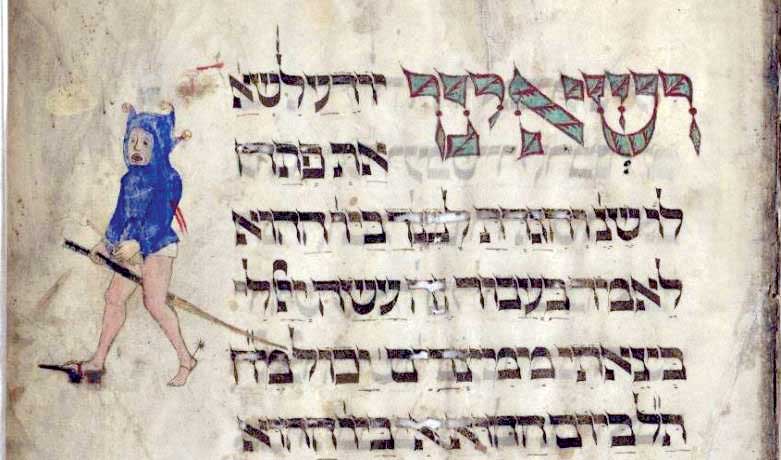 ושאינו יודע לשא
את פתח
לו שנ והגדת לבנך ביו ההוא
לאמר בעבור זה עשה יי לי
בצאתי ממצרים יכול מרח
תל ביום ההוא אי ביו ההוא